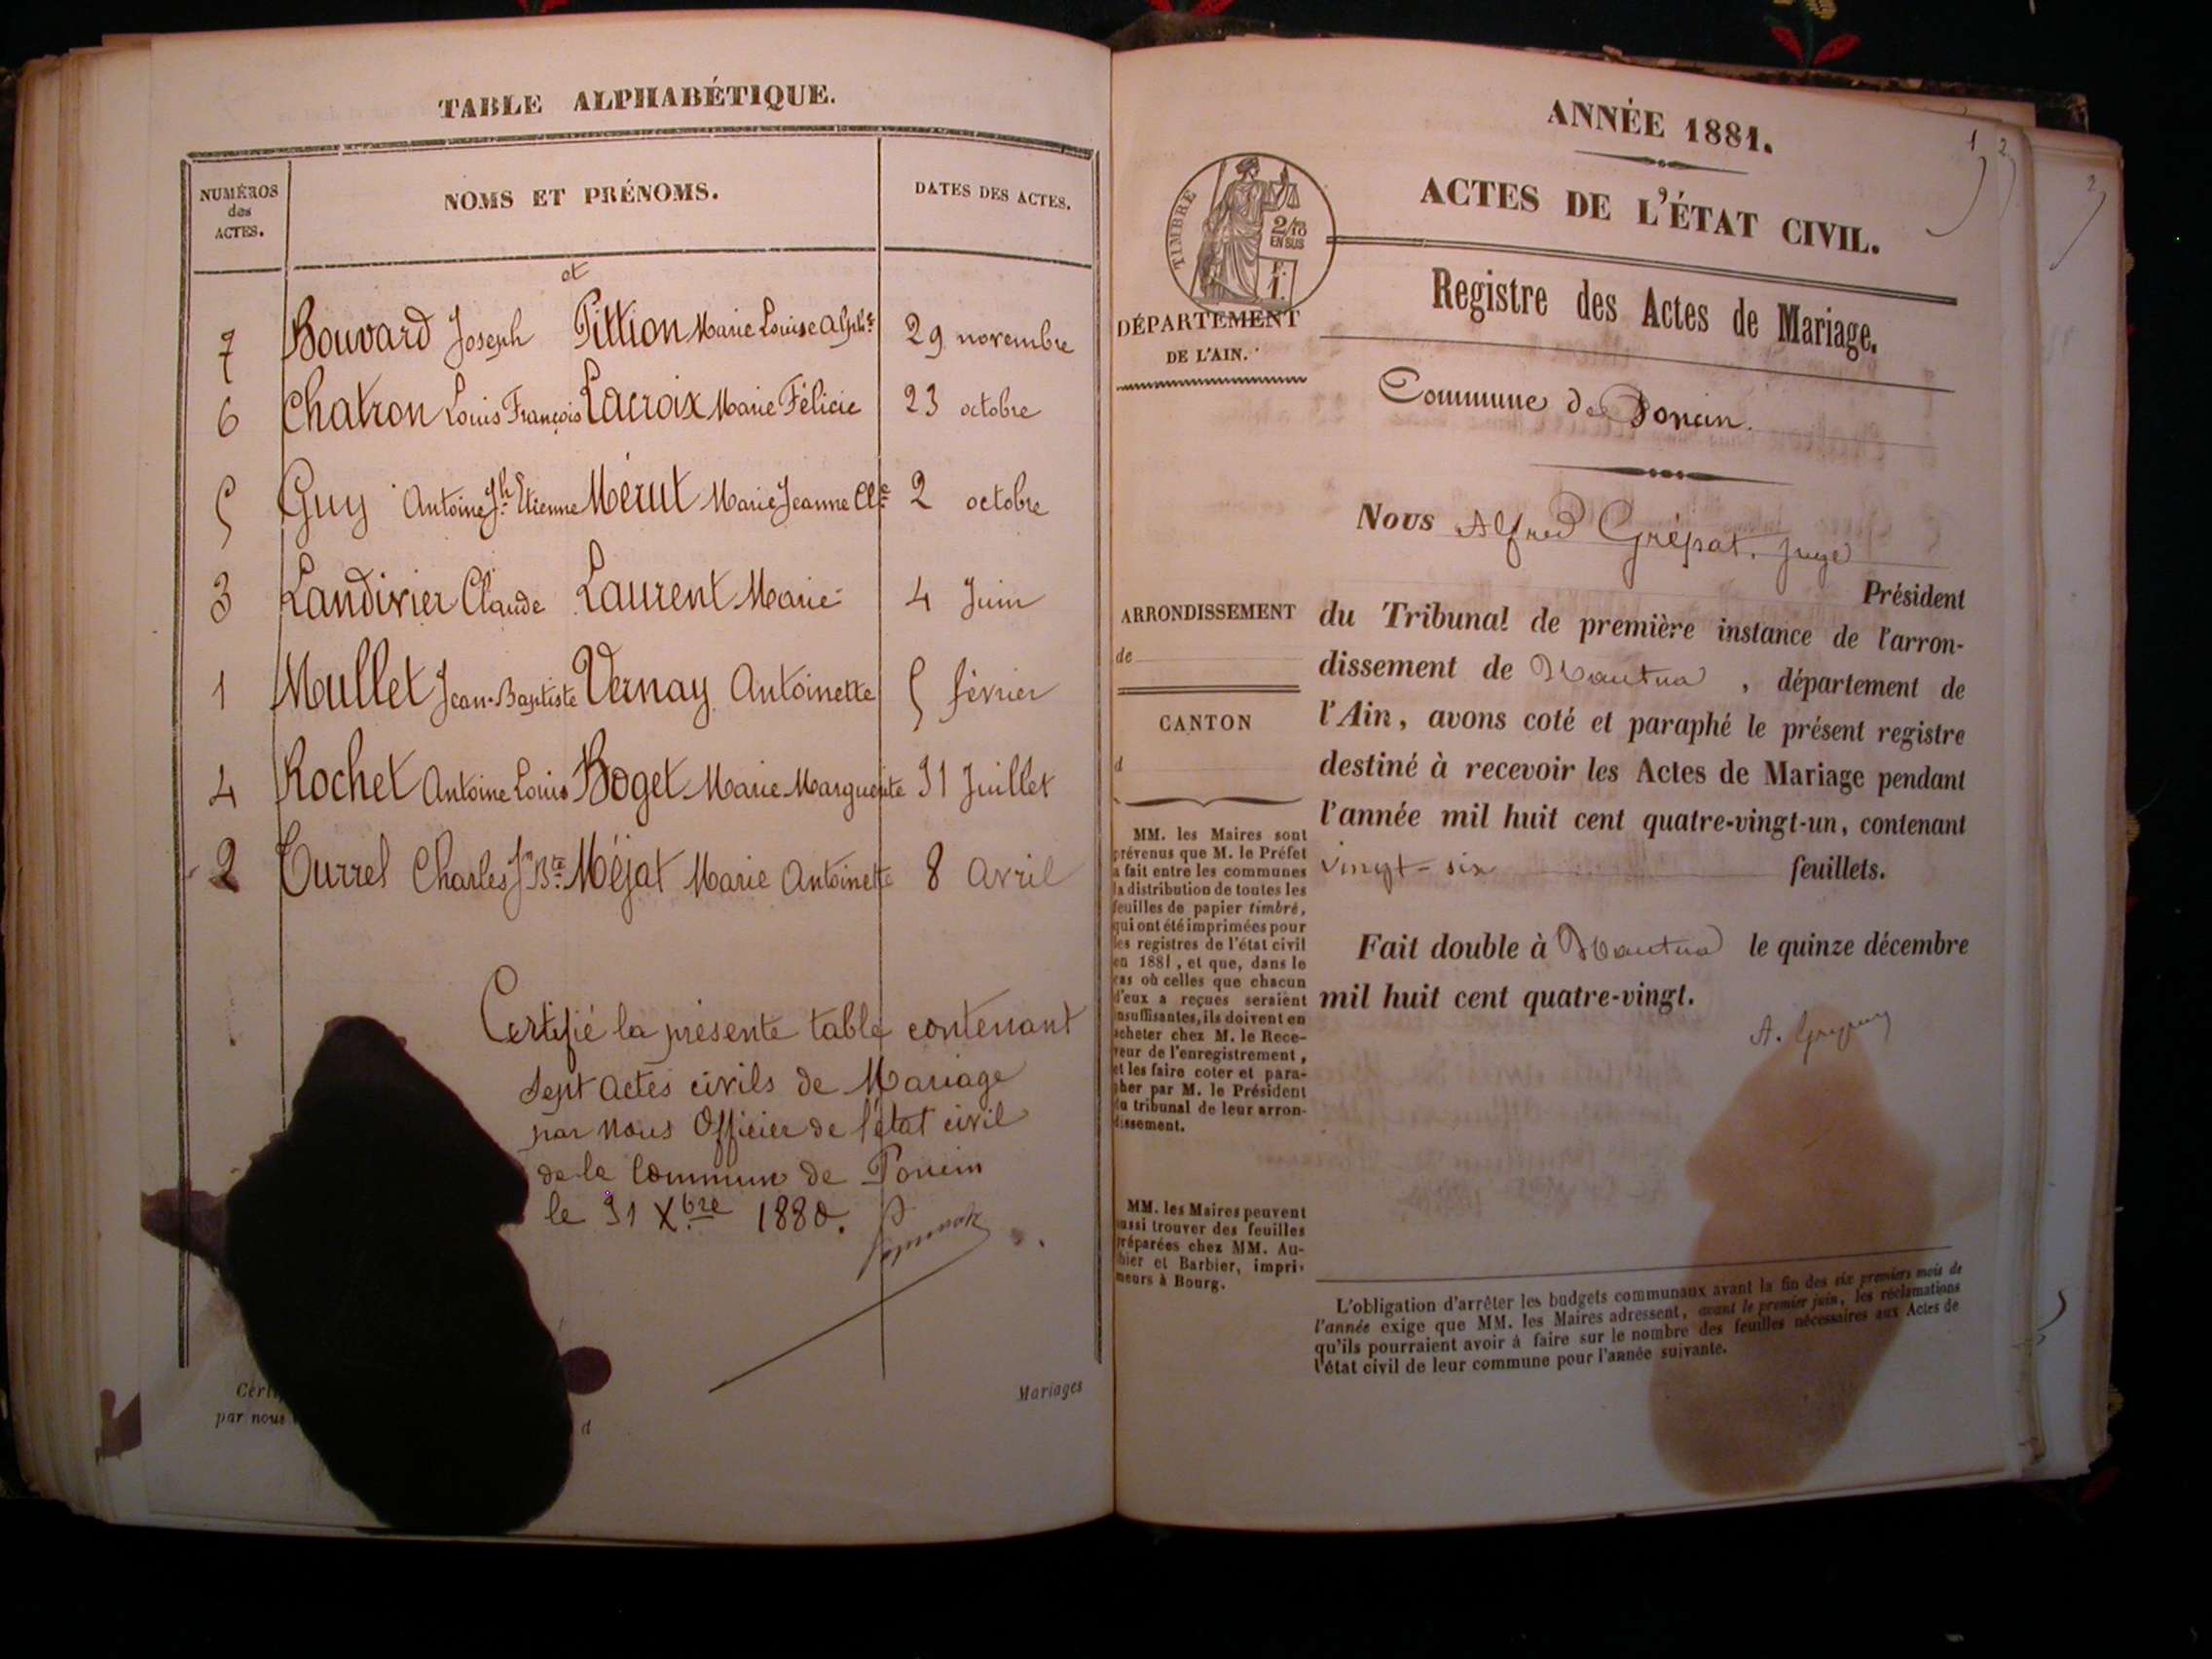 TABLE ALPHABÉTIQUE.
NUMÉROS
des
ACTES.
NOMS ET PRÉNOMS.
DATES DES ACTES.
et
7 Bouvard Joseph Pittion Marie Louise Alphse 29 novembre
6 Chatron Louis François Lacroix Marie Félicie 23 octobre
5 Guy Antoine Jh Etienne Mérut Marie Jeanne Cle 2 octobre
3 Landivier Claude Laurent Marie 4 Juin
1 Mullet Jean-Baptiste Vernay Antoinette 5 février
4 Rochet Antoine Louis Boget Marie Marguerite 31 Juillet
2 Turrel Charles Jn Bte Méjat Marie Antoinette 8 Avril
Certifié la présente table contenant
sept actes civils de Mariage
par nous Officier de l'état civil
de la Commune de Poncin
le 31 Xbre 1880.
par nous
d
Mariages
ANNÉE 1881.
1
2
3
ACTES DE L'ÉTAT CIVIL.
TIMBRE
2/10
EN SUS
F.
1.
Registre des Actes de Mariage.
DÉPARTEMENT
DE L'AIN.
Commune de Poncin.
Nous Alfred Grépat, juge
Président
ARRONDISSEMENT
de
CANTON
d
du Tribunal de première instance de l'arron-
dissement de Nantua, département de
l'Ain, avons coté et paraphé le présent registre
destiné à recevoir les Actes de Mariage pendant
l'année mil huit cent quatre-vingt-un, contenant
vingt-six feuillets.
Fait double à Nantua le quinze décembre
mil huit cent quatre-vingt.
MM. les Maires sont
prévenus que M. le Préfet
a fait entre les communes
la distribution de toutes les
feuilles de papier timbré,
qui ont été imprimées pour
les registres de l'état civil
en 1881, et que, dans le
cas où celles que chacun
d'eux a reçues seraient
insuffisantes, ils doivent en
acheter chez M. le Rece-
veur de l'enregistrement,
et les faire coter et para-
pher par M. le Président
du tribunal de leur arron-
dissement.
MM. les Maires peuvent
aussi trouver des feuilles
préparées chez MM. Au-
bier et Barbier, impri-
meurs à Bourg.
L'obligation d'arrêter les budgets communaux avant la fin des six premiers mois de
l'année exige que MM. les Maires adressent, avant le premier juin, les réclamations
qu'ils pourraient avoir à faire sur le nombre des feuilles nécessaires aux Actes de
l'état civil de leur commune pour l'année suivante.